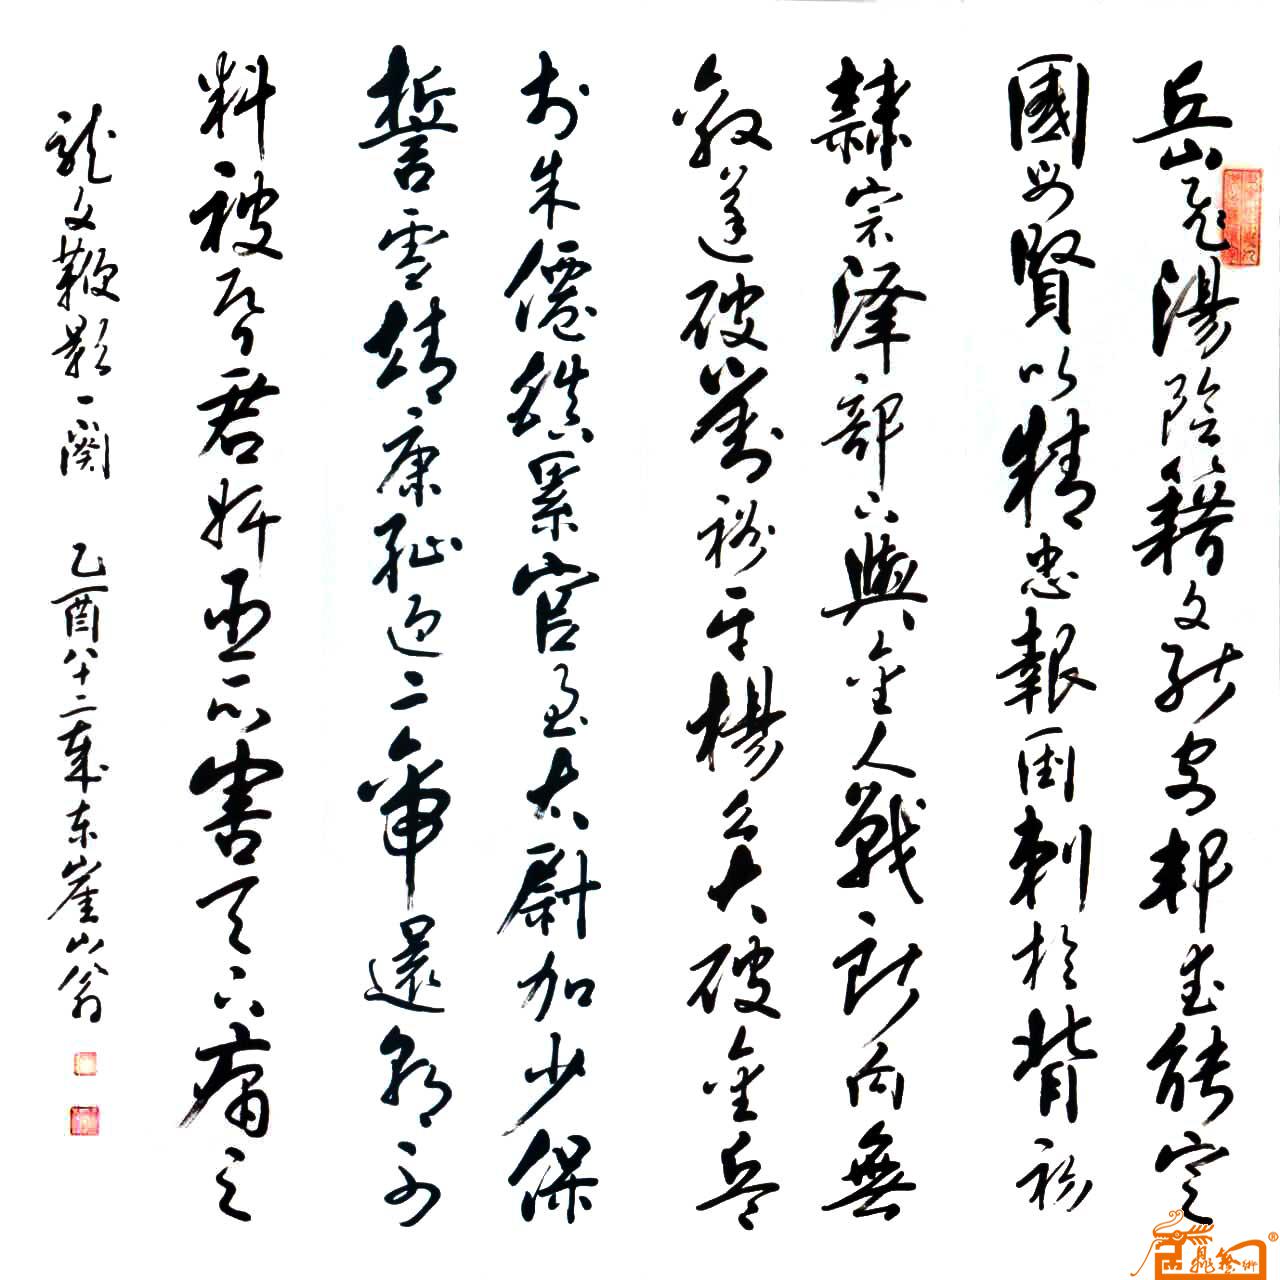 岳飛湯陰籍文能安邦武能定
國母賢以精忠報国刺於背初
隸宗澤部下與金人戰所向無
敵遂破劉裕平楊么大破金兵
於朱僊鎮累官至太尉加少保
誓雪靖康恥迎二帝還朝不
料被君奸臣所害天下痛之
龙文鞭影一阕 乙酉八十二歲东崖山翁